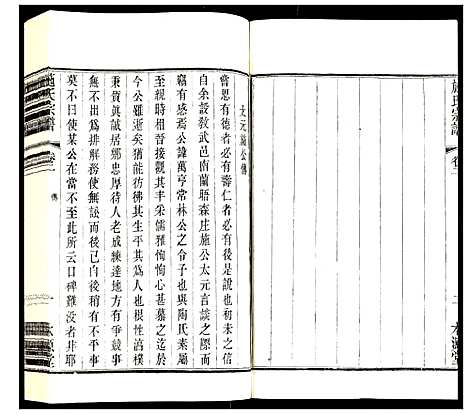 施氏宗譜
卷二
一
太源堂
文元施公傳
嘗思有德者必有壽仁者必有後是說也初未之信
自余設教武邑南蘭晤森庄施公太元言談之際
竊有感焉公諱萬亨常林公之令子也與陶氏多
至戚時相晉接觀其丰采儒雅恂恂心甚慕之
今公雖逝矣猶能彷彿其生平其為人也根性渾樸
秉質眞誠居鄉忠厚待人老成練達地方有爭競事
無不出為排解務使無訟而後已自公在而人不
莫不曰使某公在當不至此所云口碑難沒者非耶
施氏宗譜
卷二
傳
一
太源堂